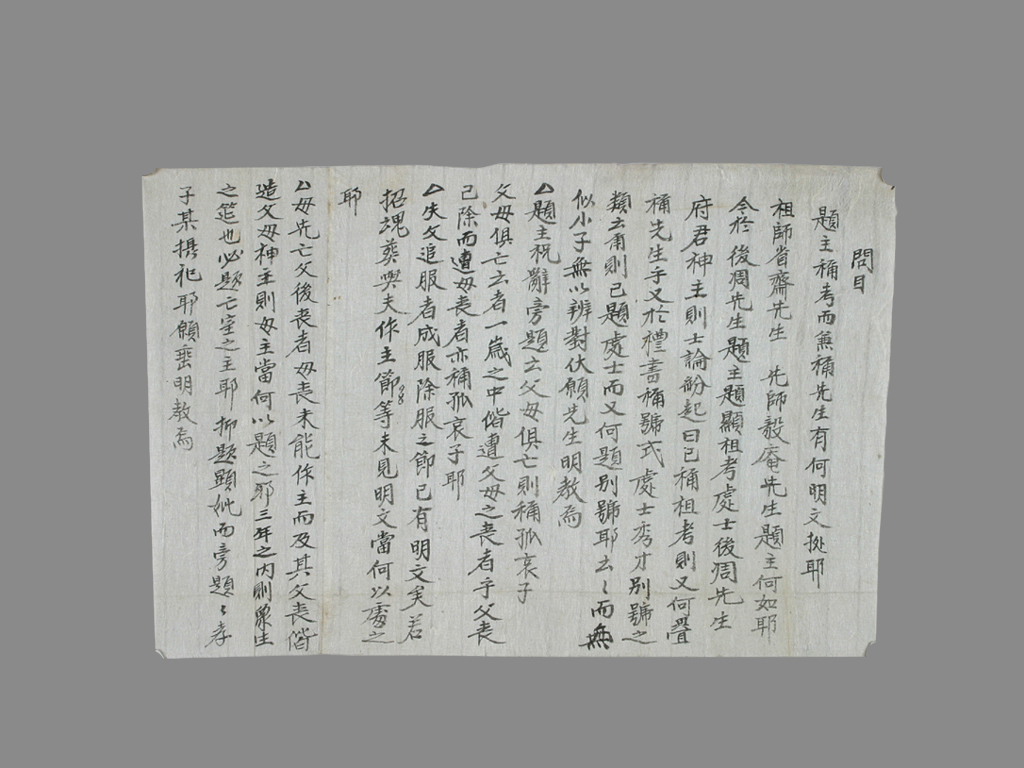 問目
題主稱考而無稱先生有何明文據耶
祖師省齋先生 先師毅庵先生題主何如耶
今於 後凋先生題主題顯祖考處士後凋先生
府君神主則士論紛起曰已稱祖考則又何疊
稱先生乎又於禮書稱號式處士秀才別號之
類云爾則已題處士而又何題別號耶云〻而無
似小子無以辨對伏願先生明教焉
△題主祝辭旁題云父母俱亡則稱孤哀子
父母俱亡云者一歲之中偕遭父母之喪者乎父喪
已除而遭母喪者亦稱孤哀子耶
△失父追服者成服除服之節已有明文矣若
招魂葬與夫作主節等未見明文當何以處之
耶
△母先亡父後喪者母喪未能作主而及其父喪偕
造父母神主則母主當何以題之耶三年之內則象生
之筵也必題亡室之主耶 抑題顯妣而旁題〻孝
子某攝祀耶願垂明教焉